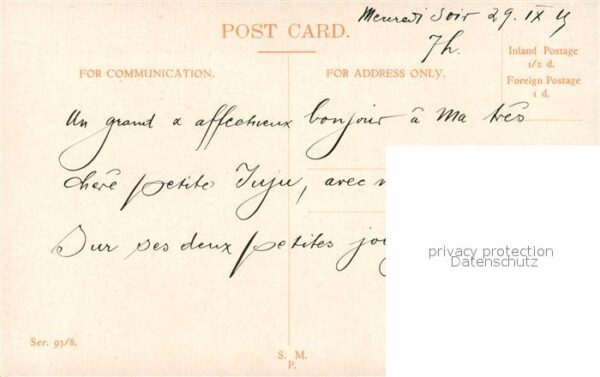 Mercredi Soir 29. IX 15
7h.
POST CARD.
Inland Postage
1/2 d.
Foreign Postage
1 d.
FOR COMMUNICATION.
FOR ADDRESS ONLY.
Un grand & affectueux bonjour à Ma très
chère petite Juju, avec
Sur ses deux petites
privacy protection
Datenschutz
Ser. 93/8.
S. M.
P.